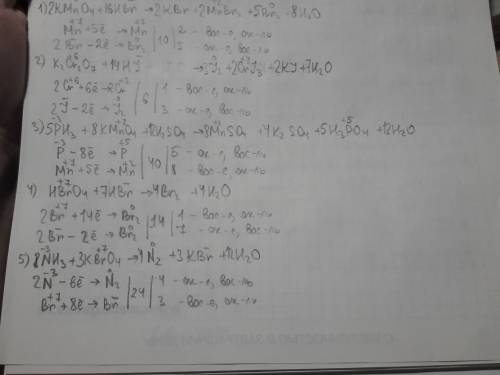 1) 2KMnO4 + 16HBr → 2KBr + 2MnBr2 + 5Br2 + 8H2O
Mn+7 + 5ē → Mn+2 | 10 | 2 – вос-е, ок-ль
2Br- – 2ē → Br2 0 | 5 – ок-е, вос-ль
2) K2Cr2O7 + 14HJ → 3J2 + 2CrJ3 + 2KJ + 7H2O
2Cr+6 + 6ē → 2Cr+3 | 6 | 1 – вос-е, ок-ль
2J- – 2ē → J2 0 | 3 – ок-е, вос-ль
3) 5PH3 + 8KMnO4 + 12H2SO4 → 8MnSO4 + 4K2SO4 + 5H3PO4 + 12H2O
P-3 – 8ē → P+5 | 40 | 5 – ок-е, вос-ль
Mn+7 + 5ē → Mn+2 | 8 – вос-е, ок-ль
4) HBrO4 + 7HBr → 4Br2 + 4H2O
2Br+7 + 14ē → Br2 0 | 14 | 1 – вос-е, ок-ль
2Br- – 2ē → Br2 0 | 7 – ок-е, вос-ль
5) 8NH3 + 3KBrO4 → 4N2 + 3KBr + 12H2O
2N-3 – 6ē → N2 0 | 24 | 4 – ок-е, вос-ль
Br+7 + 8ē → Br- | 3 – вос-е, ок-ль